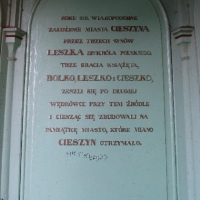 ROKU 810. WIEKOPOMNE
ZAŁOŻENIE MIASTA CIESZYNA
PRZEZ TRZECH SYNÓW
LESZKA III KRÓLA POLSKIEGO.
TRZEJ BRACIA KSIĄŻĘTA,
BOLKO, LESZKO I CIESZKO,
ZESZLI SIĘ PO DŁUGIEJ
WĘDRÓWCE PRZY TEM ŹRÓDLE
I CIESZĄC SIĘ ZBUDOWALI NA
PAMIĄTKĘ MIASTO, KTÓRE MIANO
CIESZYN OTRZYMAŁO.